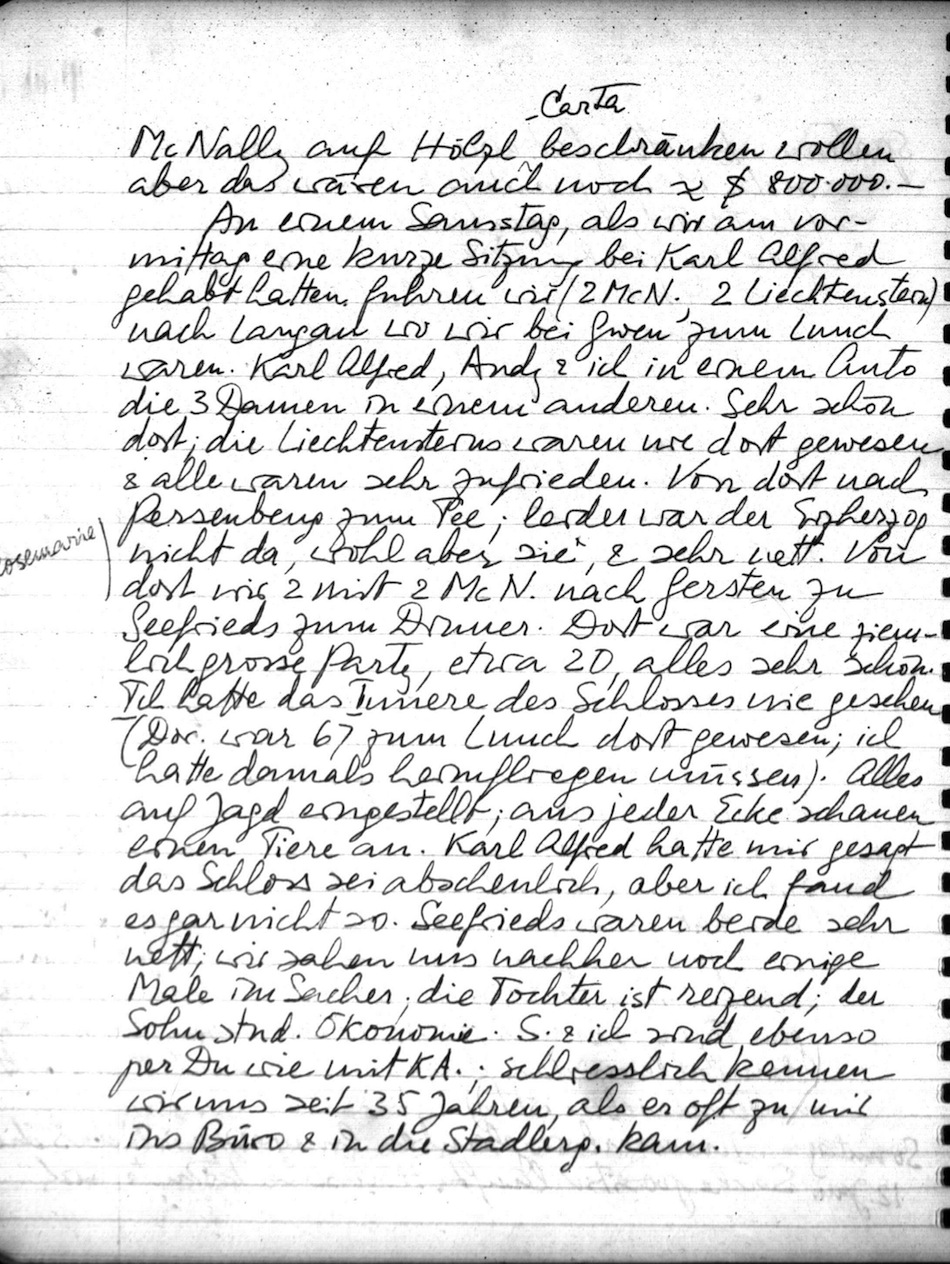 - Carta
McNally auf Hölzl beschränken wollen
aber das wären auch noch ≈ $ 800.000.–
An einem Samstag, als wir am vor-
mittag eine kurze Sitzung bei Karl Alfred
gehabt hatten, fuhren wir (2 McN., 2 Liechtenstein)
nach Langau wo wir bei Gwen zum Lunch
waren. Karl Alfred, Andy & ich in einem Auto
die 3 Damen in einem anderen. Sehr schön
dort; die Liechtensteins waren nie dort gewesen
& alle waren sehr zufrieden. Von dort nach
Persenbeug zum Tee; leider war der Erzherzog
nicht da, wohl aber sie, & sehr nett. Von
Rosemarie)
dort wir 2 mit 2 McN. nach Gersten zu
Seefrieds zum Dinner. Dort war eine ziem-
lich grosse Party, etwa 20, alles sehr schön.
Ich hatte das Innere des Schlosses nie gesehen
(Dor. war 67 zum Lunch dort gewesen; ich
hatte damals heimfliegen müssen). Alles
auf Jagd eingestellt; aus jeder Ecke schauen
einen Tiere an. Karl Alfred hatte mir gesagt
das Schloss sei abscheulich, aber ich fand
es gar nicht so. Seefrieds waren beide sehr
nett; wir sahen uns nachher noch einige
Male im Sacher; die Tochter ist reizend; der
Sohn stud. Ökonomie. S. & ich sind ebenso
per Du wie mit KA.; schliesslich kennen
wir uns seit 35 Jahren, als er oft zu mir
ins Büro & in die Stadlerg. kam.